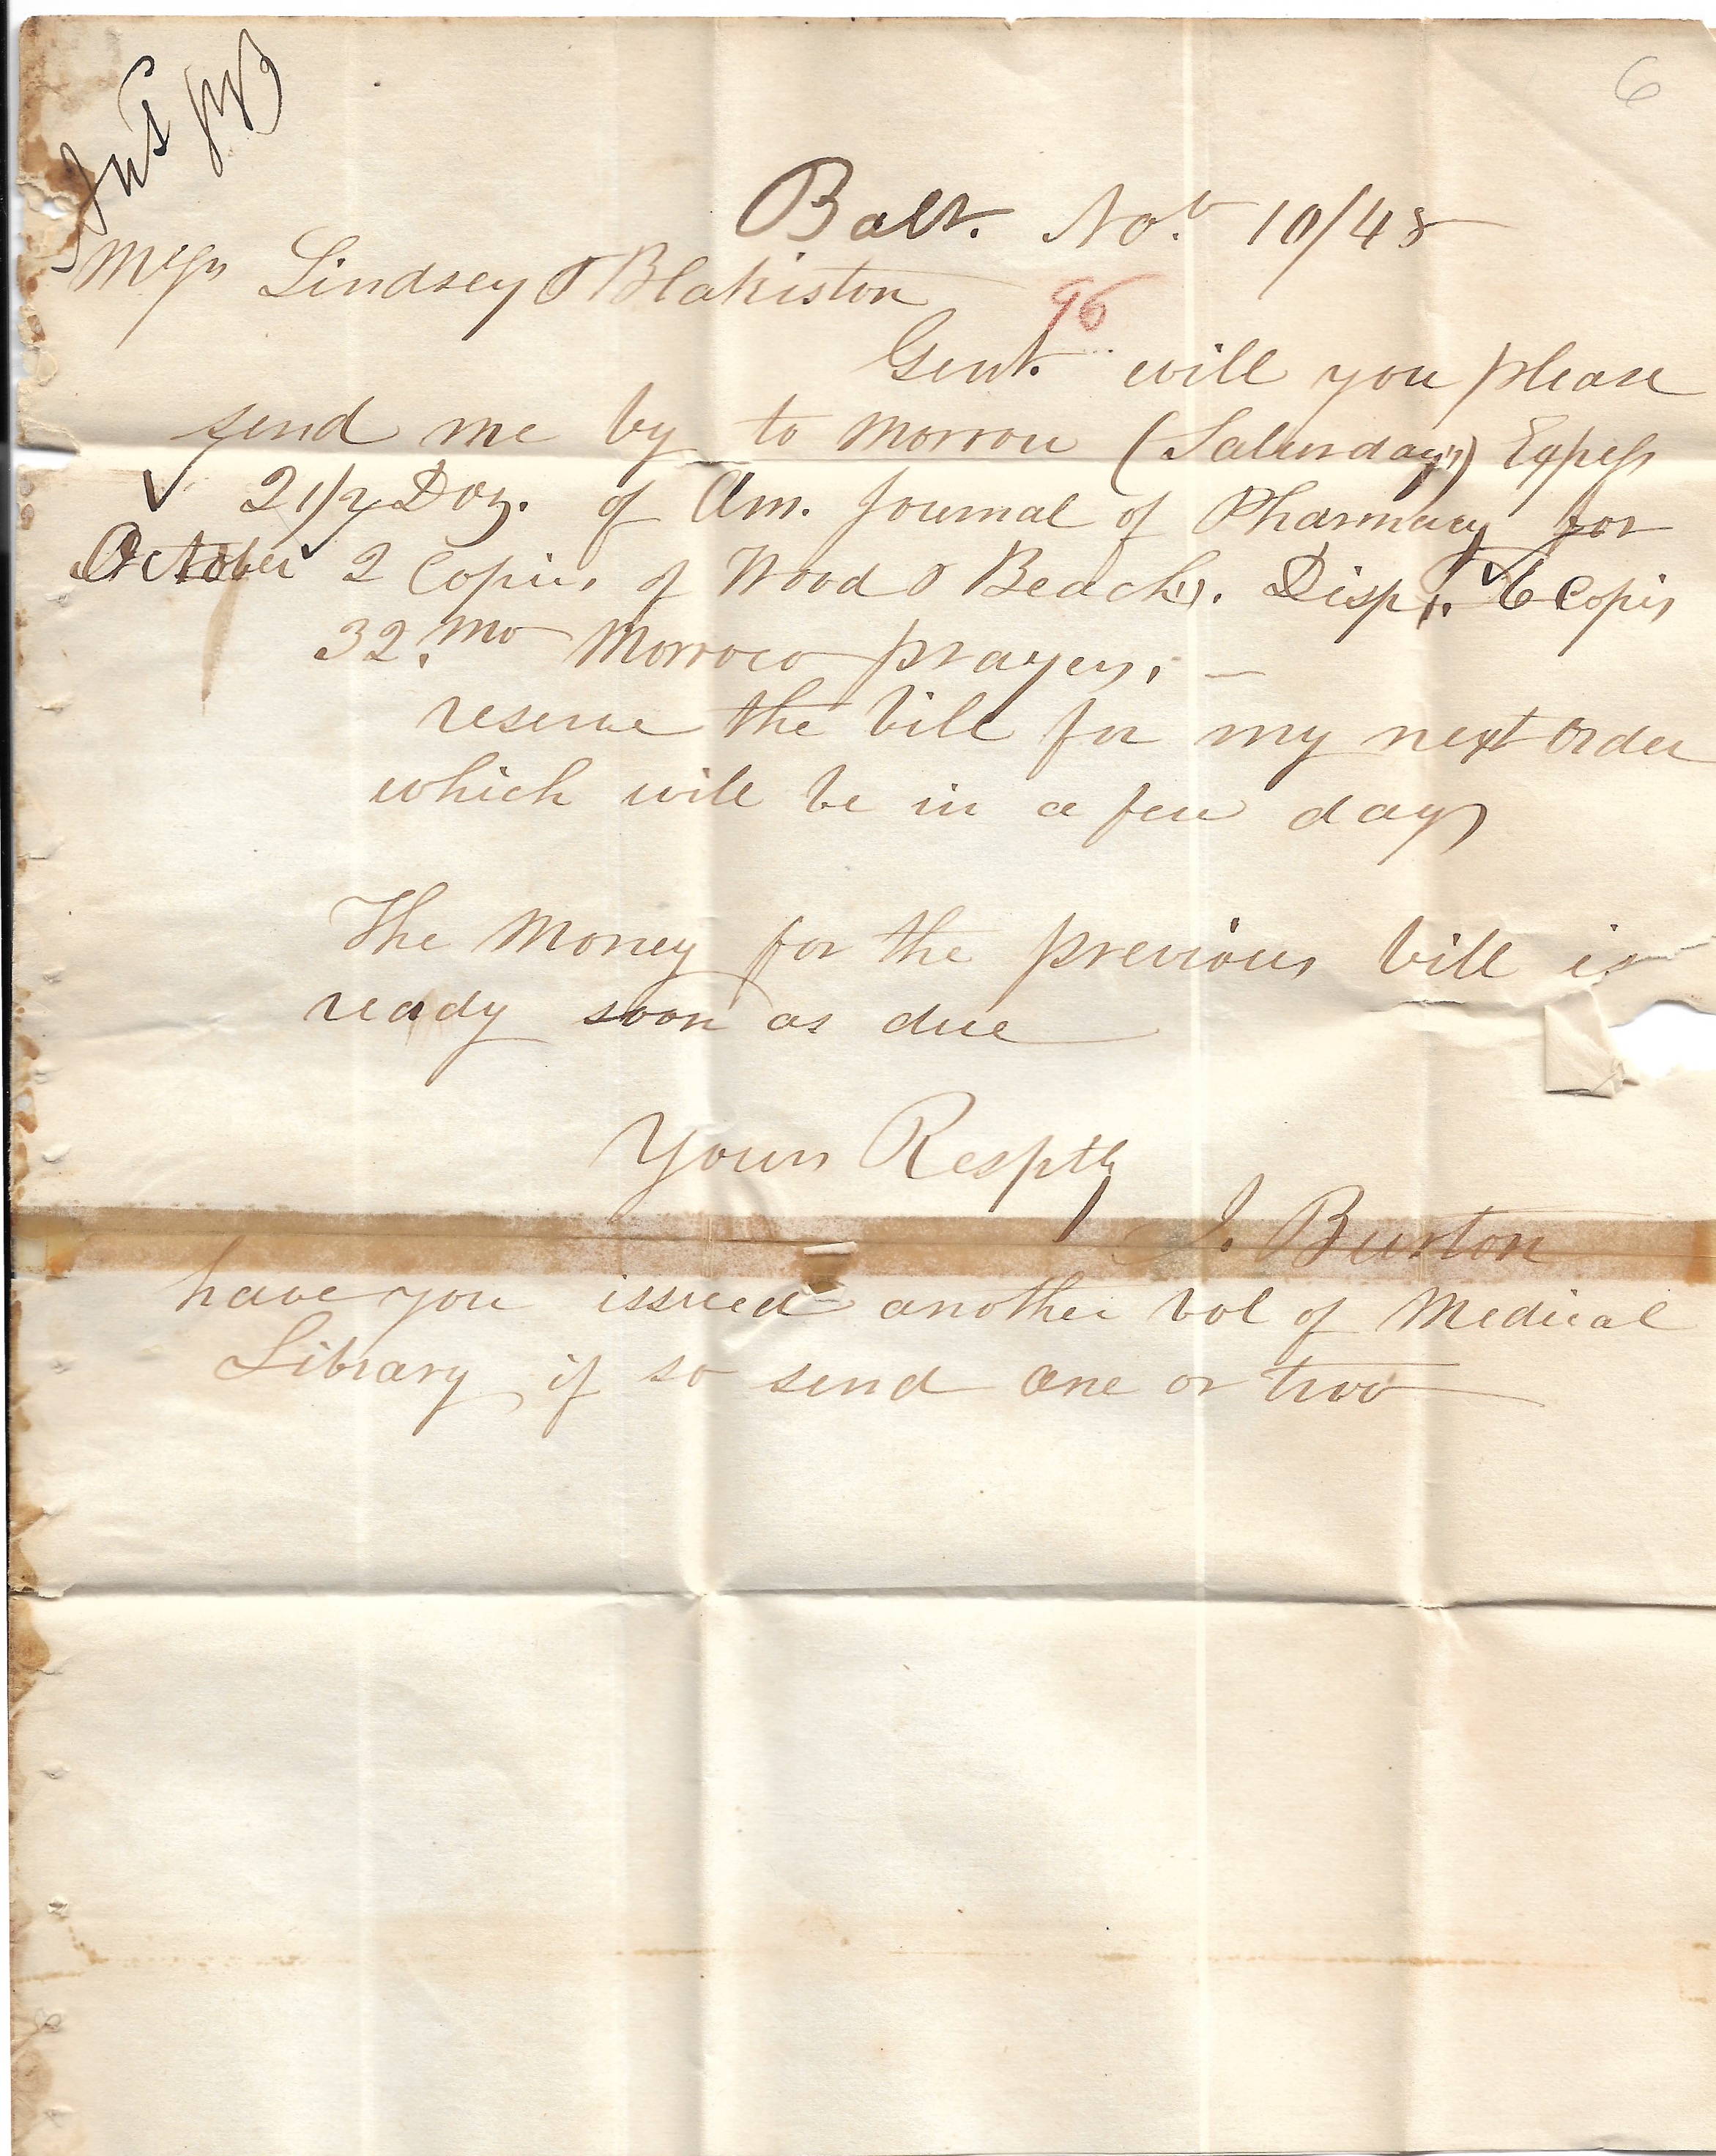 6
Balt. Nov. 10/48
Messrs Lindsey & Blakiston
96
Gent. will you please
send me by to morrow (Saturdays) Express
2 1/2 Doz. of Am. Journal of Pharmacy for
October 2 Copies of Wood & Beach. Disp. 6 Copies
32.mo Morroco prayers. —
reserve the bill for my next order
which will be in a few days
The Money for the previous bill is
ready soon as due
Yours Resptly
J. Burton
have you issued another vol of Medical
Library if so send one or two